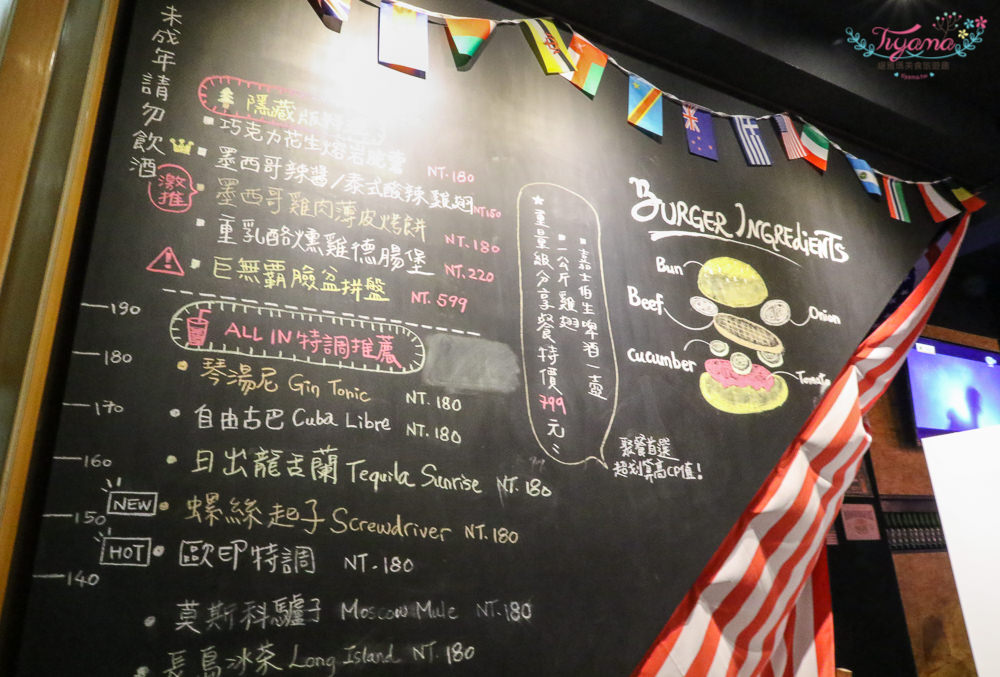 未成年請勿飲酒
隱藏版
巧克力花生熔岩脆薯 NT.180
墨西哥辣醬/泰式酸辣雞翅 NT150
激推
墨西哥雞肉薄皮烤餅 NT.180
重乳酪燻雞德腸堡 NT.220
巨無霸臉盆拼盤 NT.599
ALL IN 特調推薦
琴湯尼 Gin Tonic NT.180
自由古巴 Cuba Libre NT.180
日出龍舌蘭 Tequila Sunrise NT.180
NEW 螺絲起子 Screwdriver NT.180
HOT 歐印特調 NT.180
莫斯科驢子 Moscow Mule NT.180
長島冰茶 Long Island NT.180
190
180
170
160
150
140
重量級分享餐特價799元
一公斤雞翅
嘉士伯生啤酒一壺
BURGER INGREDIENTS
Bun
Beef
Cucumber
Onion
Tomato
聚餐首選
超划算高CP值!
Tiyama
tiyama.tw